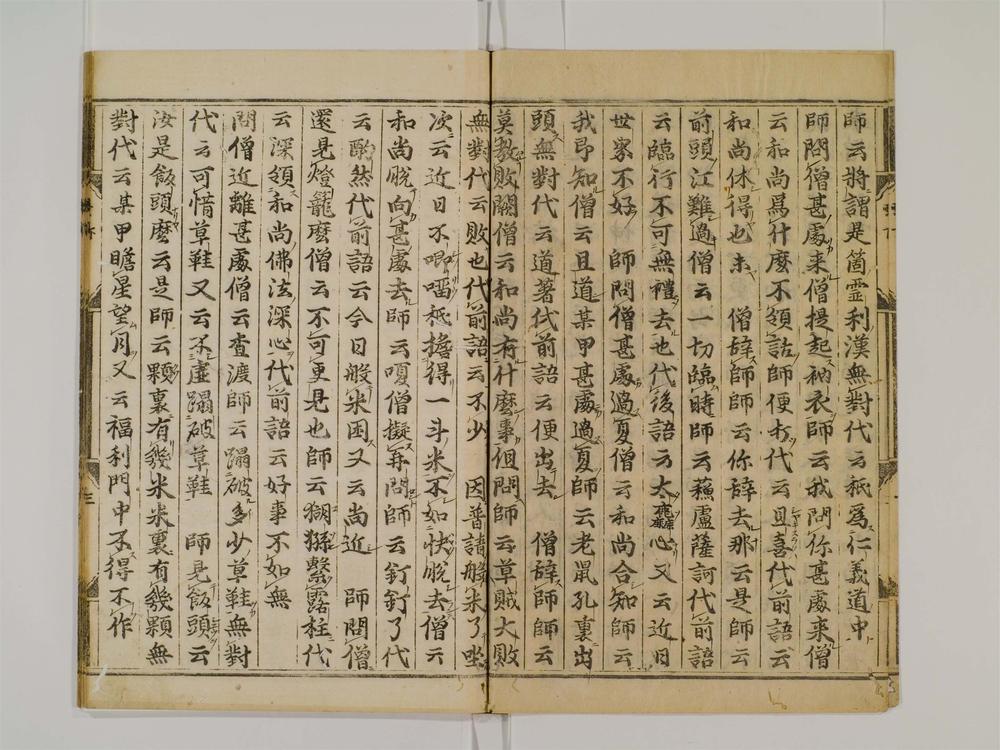 師云將謂是箇霊利漢無對代云祇為仁義道中
師問僧甚處来僧提起衲衣師云我問你甚處来僧
云和尚爲什麼不領話師便打代云且喜代前語云
和尚休得也未　僧辞師師云你辞去那云是師云
前頭江難過僧云一切臨時師云蘓盧薩訶代前語
云臨行不可無禮去也代後語云太心又云近日
世界不好　師問僧甚處過夏僧云和尚合知師云
我即知僧云且道某甲甚處過夏師云老鼠孔裏出
頭無對代云道著代前語云便出去　僧辞師師云
莫教敗闕僧云和尚有什麼事但問師云草賊大敗
無對代云敗也代前語云不少　因普請般米了坐
次云近日不唧𠺕祇擔得一斗米不如快脫去僧云
和尚脫向甚處去師云嗄僧擬再問師云釘釘了代
云酌然代前語云今日般米困又云尚近　師問僧
還見燈籠麼僧云不可更見也師云猢猻繫露柱代
云深領和尚佛法深心代前語云好事不如無
問僧近離甚處僧云查渡師云蹋破多少草鞋無對
代云可惜草鞋又云不虛蹋破草鞋　師見飯頭云
汝是飯頭麼云是師云顆裏有幾米米裏有幾顆無
對代云某甲瞻星望月又云福利門中不得不作